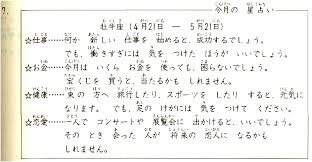 7.
今月の 星占い
牡牛座 (4月21日 ― 5月21日)
☆仕事……何か 新しい 仕事を 始めると、成功するでしょう。
でも、働きすぎには 気を つけた ほうが いいでしょう。
☆お金……今月は いくら お金を 使っても、困らないでしょう。
宝くじを 買うと、当たるかも しれません。
☆健康……東の 方へ 旅行したり、スポーツを したり すると、元気に
なります。 でも、足の けがには 気を つけて ください。
☆恋愛……一人で コンサートや 展覧会に 出かけると、いいでしょう。
その とき 会った 人が 将来の 恋人に なるかも
しれません。